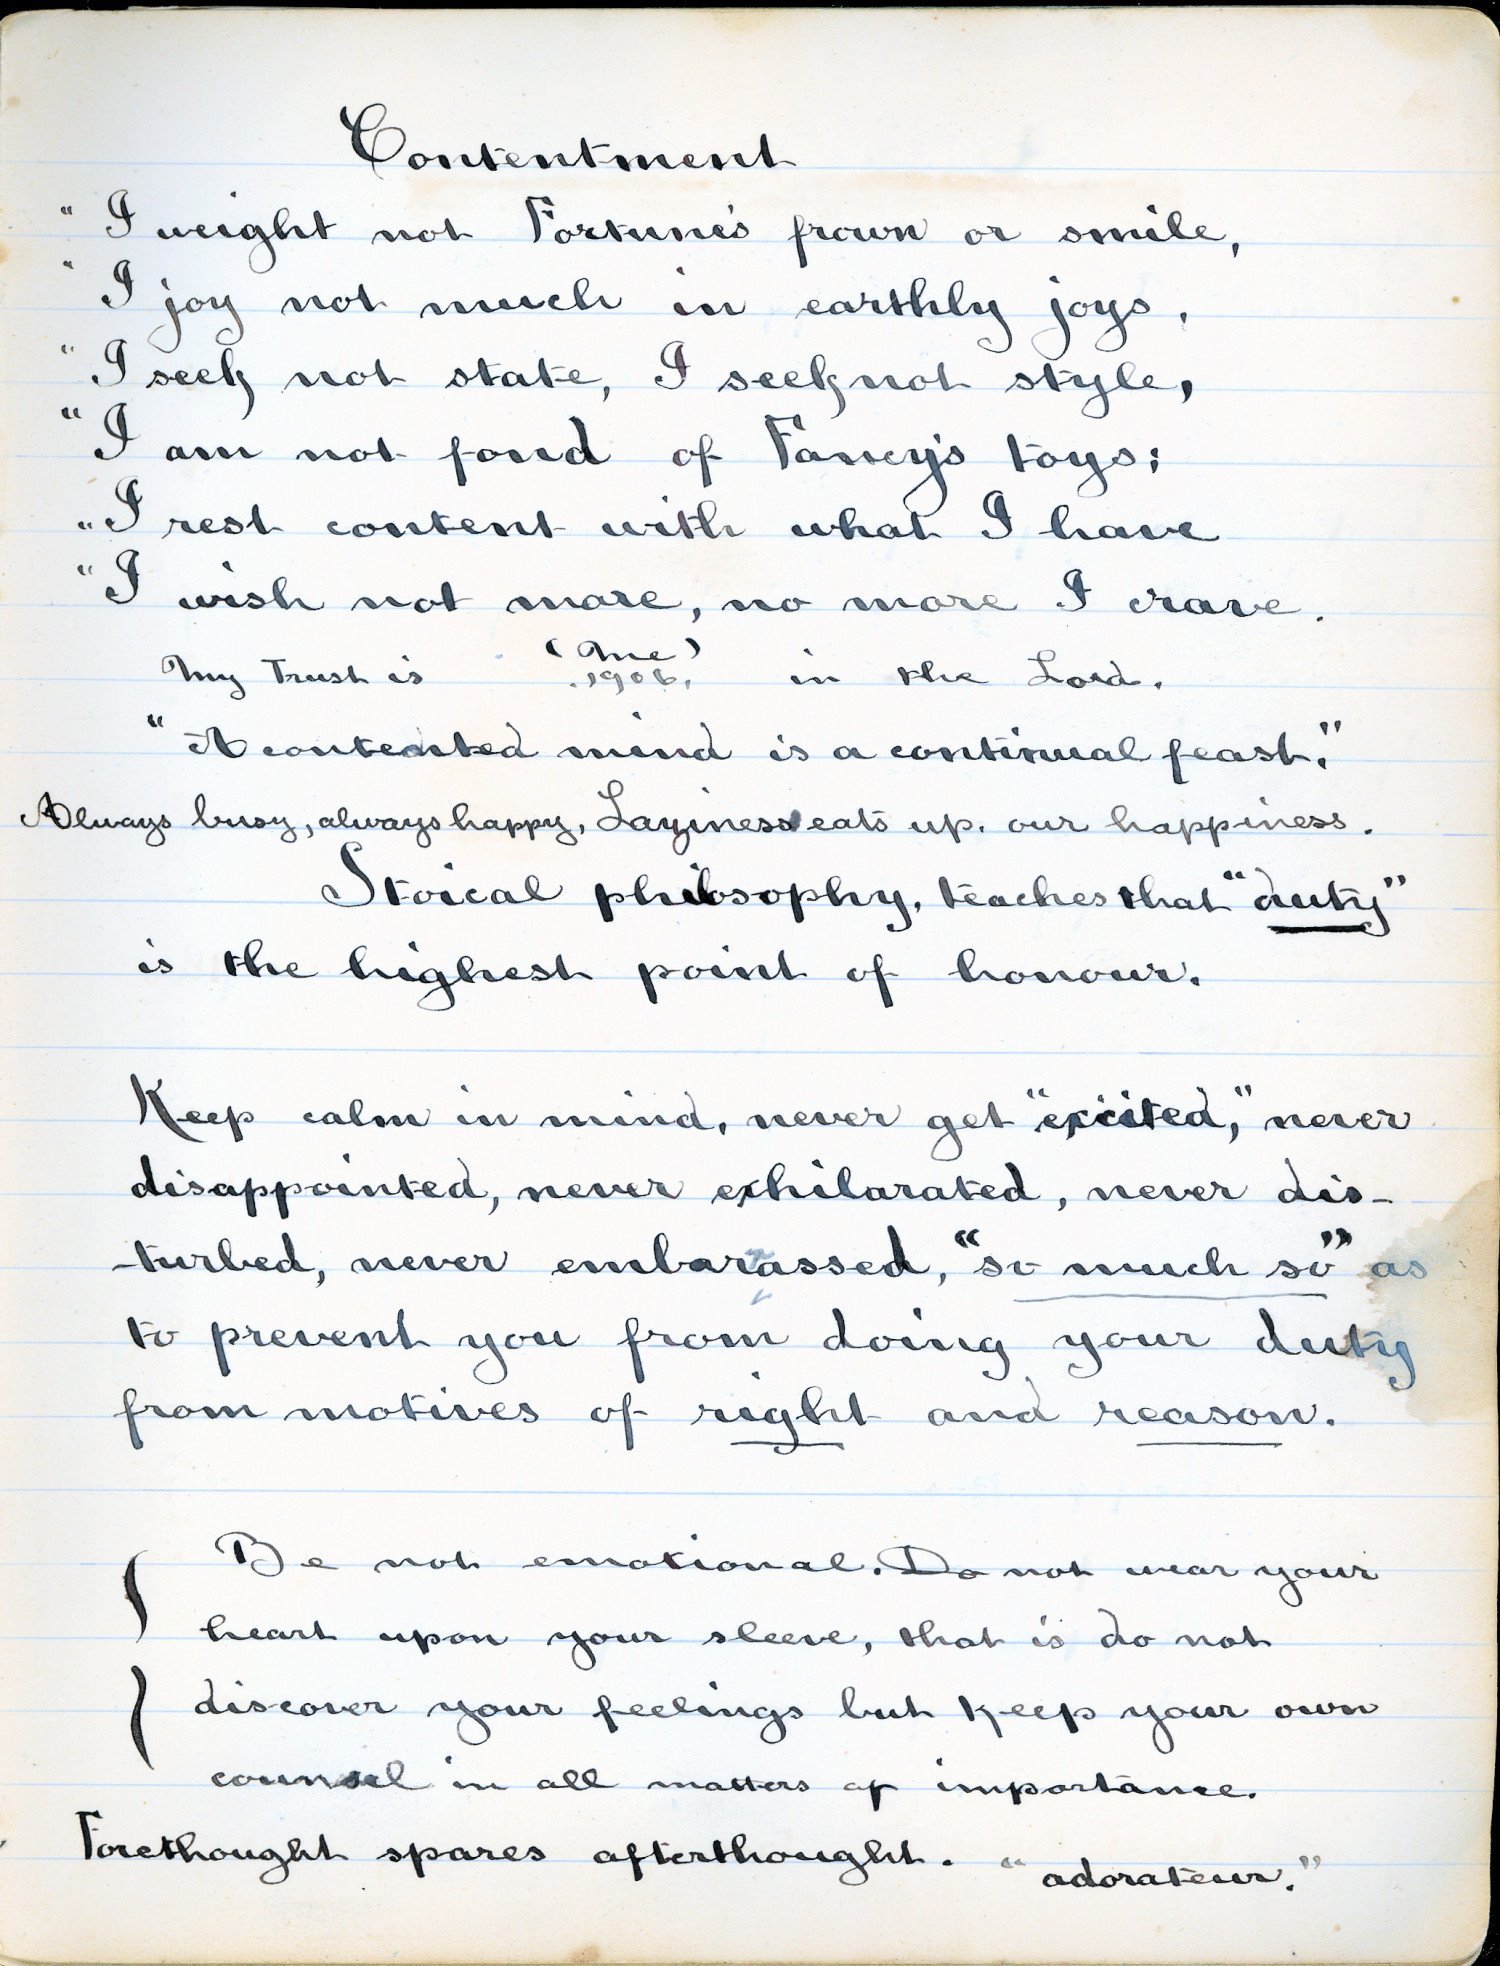 Contentment
" I weight not Fortune's frown or smile,
" I joy not much in earthly joys,
" I seek not state, I seek not style,
" I am not fond of Fancy's toys;
" I rest content with what I have
" I wish not more, no more I crave.
(Me)
My Trust is 1906. in the Lord.
"A contented mind is a continual feast."
Always busy, always happy, Layiness eats up our happiness.
Stoical philosophy, teaches that "duty"
is the highest point of honour.
Keep calm in mind, never get "excited," never
disappointed, never exhilarated, never dis-
-turbed, never embarrassed, "so much so" as
to prevent you from doing your duty
from motives of right and reason.
Be not emotional. Do not wear your
heart upon your sleeve, that is do not
discover your feelings but keep your own
counsel in all matters of importance.
Forethought spares afterthought. "adorateur."